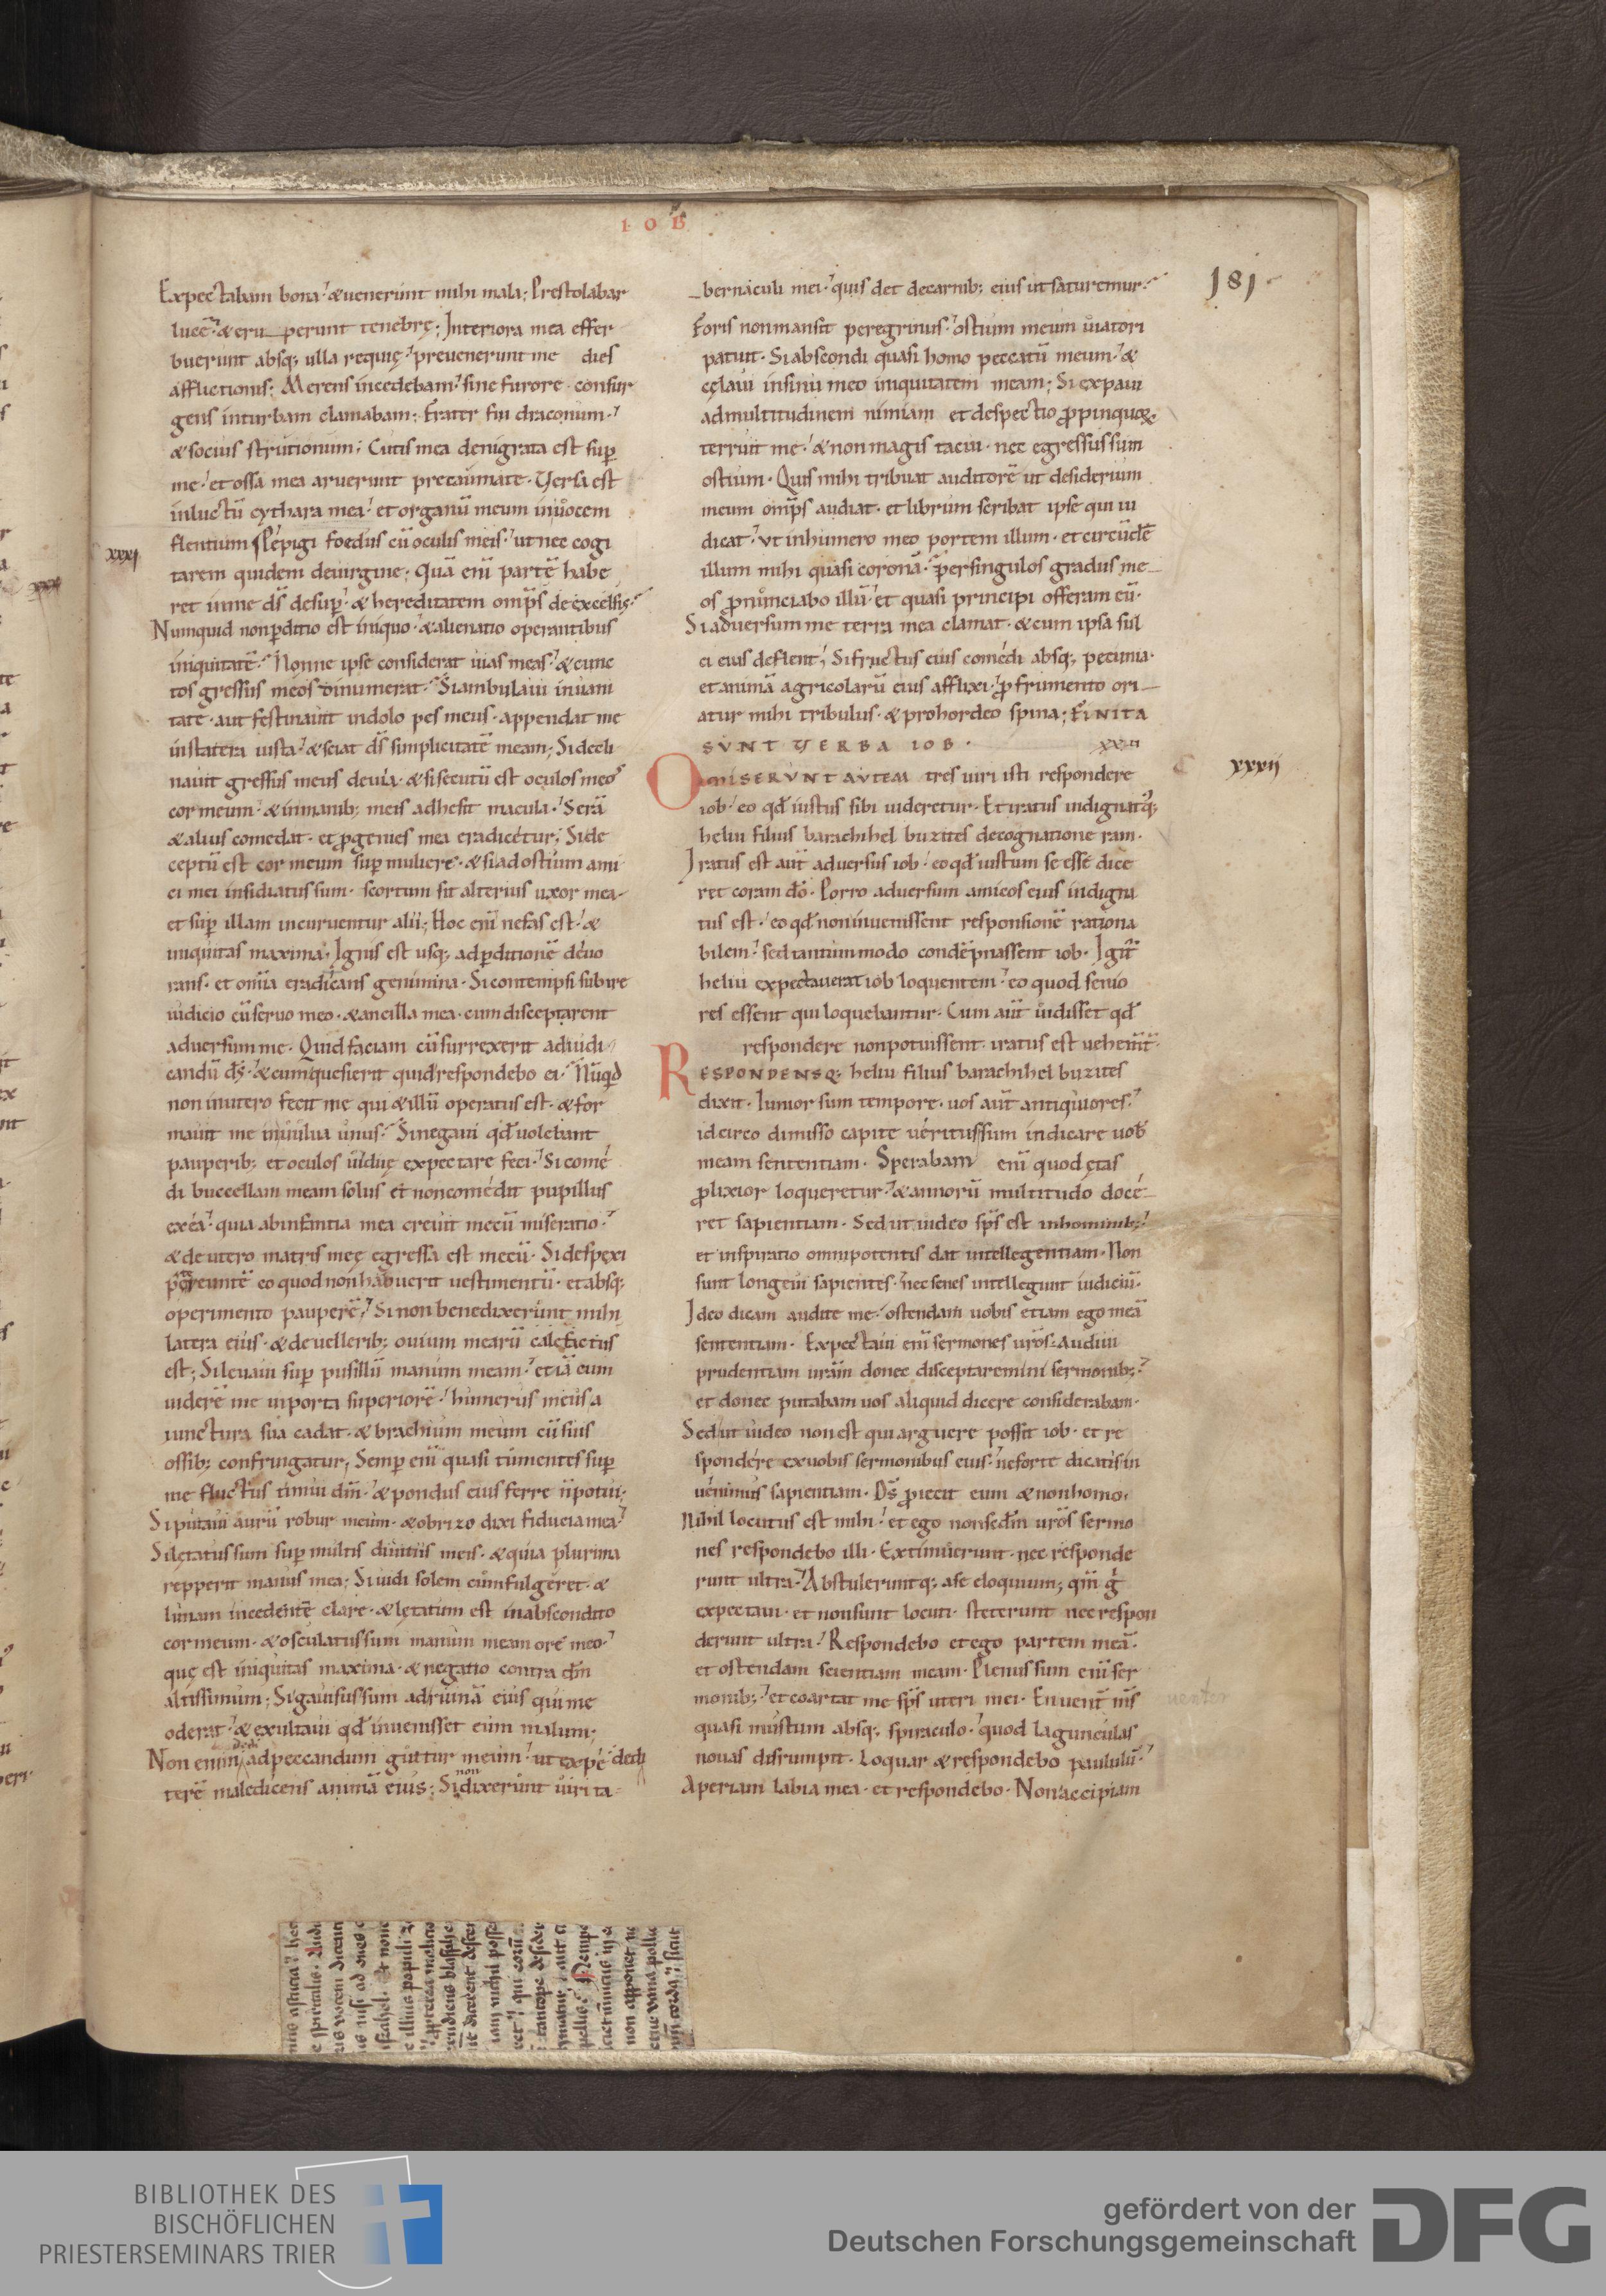 IOB
181
Expectabam bona· & uenerunt mihi mala; Prestolabar
lucē· & eru perunt tenebrę; Interiora mea effer
buerunt absq; ulla requię· preuenerunt me dies
afflictionis; Merens incedebam· sine furore· consur
gens inturbam clamabam; Frater fui draconum·
& socius strutionum; Cutis mea denigrata est sup̄
me· et ossa mea aruerunt precaumate· Uersa est
inluctū cythara mea· et organū meum inuocem
flentium
xxxi
Pepigi foedus cū oculis meis· ut nec cogi
tarem quidem deuirgine; Quā enī partē habe
ret inme d̄s desup̄· & hereditatem omp̄s deexcelsis·
Numquid non pditio est iniquo· & alienatio operantibus
iniquitatē· Nonne ipse considerat uias meas· & cunc
tos gressus meos dinumerat· Si ambulaui inuani
tate· aut festinauit indolo pes meus· appendat me
instatera iusta· & sciat d̄s simplicitatē meam; Si decli
nauit gressus meus deuia· & si secutū est oculos meos
cor meum· & inmanib; meis adhesit macula· Serā
& alius comedat· et pgenies mea eradicetur; Si de
ceptū est cor meum sup̄ muliere· & si ad ostium ami
ci mei insidiatus sum· scortum sit alterius uxor mea·
et sup̄ illam incuruentur alii; Hoc enī nefas est· &
iniquitas maxima· Ignis est usq; ad pditionē deuo
rans· et omīa eradicans genimina· Si contempsi subire
iudicio cū seruo meo· & ancilla mea· cum disceptarent
aduersum me· Quid faciam cū surrexerit ad iudi
candū d̄s· & cum quesierit quid respondebo ei· Nūqd
non inutero fecit me qui & illū operatus est· & for
mauit me inuulua unus· Si negaui qd̄ uolebant
pauperib; et oculos uiduę expectare feci· Si come
di buccellam meam solus et non comedit pupillus
exea· quia abinfantia mea creuit mecū miseratio·
& de utero matris meę egressa est mecū· Si despexi
p̄tereuntē eo quod non habuerit uestimentū· et absq;
operimento pauperē· Si non benedixerunt mihi
latera eius· & de uellerib; ouium mearū calefactus
est; Si leuaui sup̄ pupillū manum meam· etiā cum
uiderē me inporta superiorē· humerus meus a
iunctura sua cadat· & brachium meum cū suis
ossib; confringatur; Semp̄ enī quasi tumentes sup̄
me fluctus timui dn̄m· & pondus eius ferre n̄ potui;
Si putaui aurū robur meum· & obrizo dixi fiducia mea·
Si lętatus sum sup̄ multis diuitiis meis· & quia plurima
repperit manus mea; Si uidi solem cum fulgeret· &
lunam incedentē clare· & lętatum est inabscondito
cor meum· & osculatus sum manum meam ore meo·
quę est iniquitas maxima· & negatio contra dm̄
altissimum; Si gauisus sum ad ruinā eius qui me
oderat· & exultaui qd̄ inuenisset eum malum;
Non enim ad peccandum guttur meum· ut expe dedi
terē maledicens animā eius; Si non dixerunt uiri ta
bernaculi mei· quis det decarnib; eius ut saturemur·
Foris non mansit peregrinus· ostium meum uiatori
patuit· Si abscondi quasi homo peccatū meum· &
cęlaui insinu meo iniquitatem meam; Si expaui
ad multitudinem nimiam et despectio propinquoꝝ·
terruit me· & non magis tacui· nec egressus sum
ostium· Quis mihi tribuat auditorē ut desiderium
meum omp̄s audiat· et librum scribat ipse qui iu
dicat· Ut inhumero meo portem illum· et circūdē
illum mihi quasi coronā· persingulos gradus me
os pronunciabo illū· et quasi principi offeram eū·
Si aduersum me terra mea clamat· & cum ipsa sul
ci eius deflent; Si fructus eius comedi absq; pecunia·
et animā agricolarū eius afflixi· pro frumento ori
atur mihi tribulus· & pro hordeo spina; FINITA
SUNT UERBA IOB·
xxxii
xxxii
OMISERUNT AUTEM tres uiri isti respondere
iob· eo qd̄ iustus sibi uideretur· Et iratus indignatq;
heliu filius barachihel buzites decognatione ram·
Iratus est aut̄ aduersus iob· eo qd̄ iustum se esse dice
ret coram dō· Porro aduersum amicos eius indigna
tus est· eo qd̄ non inuenissent responsionē rationa
bilem· sed tantummodo condēpnassent iob· Igit̄
heliu expectauerat iob loquentem· eo quod senio
res essent qui loquebantur· Cum aut̄ uidisset qd̄
respondere non potuissent· iratus est uehem̄t·
RESPONDENSQ; heliu filius barachihel buzites
dixit· Iunior sum tempore· uos aut̄ antiquiores·
idcirco dimisso capite ueritus sum indicare uob̄
meam sententiam· Sperabam enī quod ętas
prolixior loqueretur· & annorū multitudo doce
ret sapientiam· Sed ut uideo sp̄s est inhominib;
et inspiratio omnipotentis dat intellegentiam· Non
sunt longeui sapientes· nec senes intellegunt iudiciū·
Ideo dicam audite me· ostendam uobis etiam ego meā
sententiam· Expectaui enī sermones uros· audiui
prudentiam uram donec disceptaremini sermonib;
et donec putabam uos aliquid dicere considerabam·
Sed ut uideo non est qui arguere possit iob· et re
spondere exuobis sermonibus eius· ne forte dicatis in
uenimus sapientiam· D̄s proiecit eum & non homo·
Nihil locutus est mihi· et ego non secdm uros sermo
nes respondebo illi· Extimuerunt· nec responde
runt ultra· Abstuleruntq; ase eloquium; qm̄ g̊
expectaui· et non sunt locuti· steterunt nec respon
derunt ultra· Respondebo et ego partem meā·
et ostendam scientiam meam· Plenus sum enī ser
monib; et coartat me sp̄s uteri mei· En uent̄ ms̄
uenter
quasi mustum absq; spiraculo· quod lagunculas
nouas disrumpit· Loquar & respondebo paululū·
Aperiam labia mea· et respondebo· Non accipiam
BIBLIOTHEK DES
BISCHÖFLICHEN
PRIESTERSEMINARS TRIER
gefördert von der
Deutschen Forschungsgemeinschaft
DFG